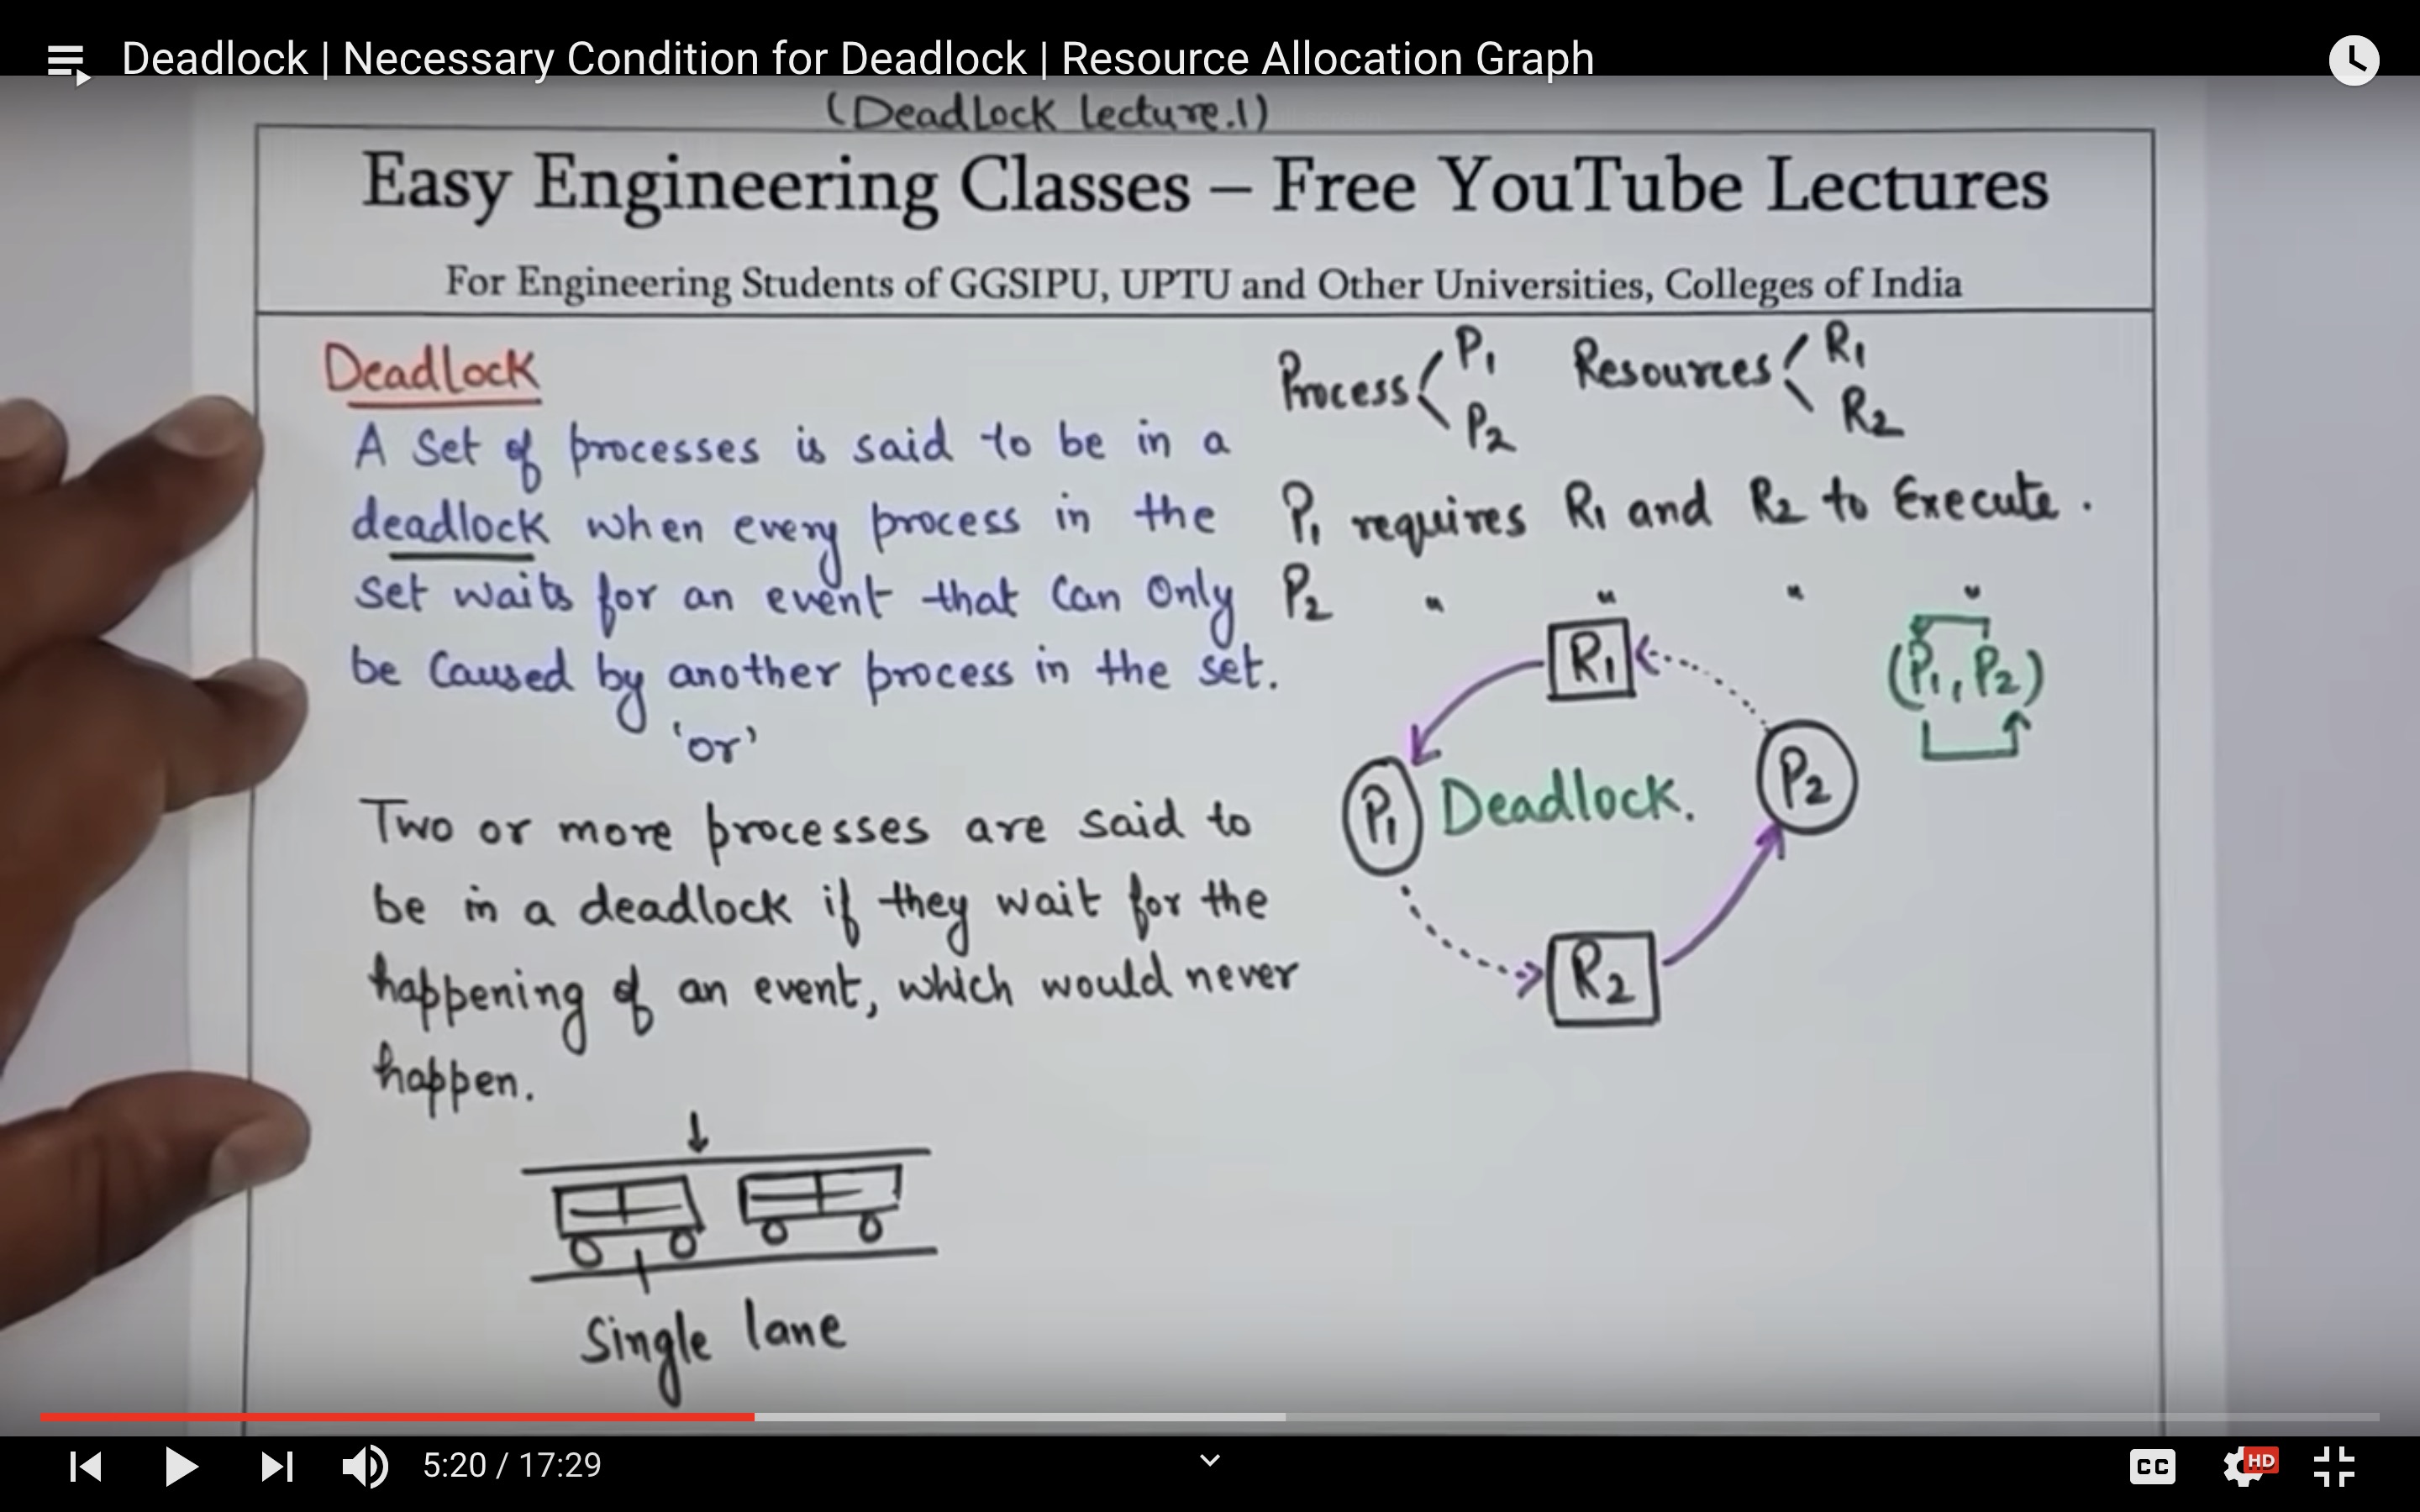 Deadlock | Necessary Condition for Deadlock | Resource Allocation Graph
(DeadLock lecture.1)
Easy Engineering Classes – Free YouTube Lectures
For Engineering Students of GGSIPU, UPTU and Other Universities, Colleges of India
Deadlock
A set of processes is said to be in a
deadlock when every process in the
set waits for an event that can only
be caused by another process in the set.
'or'
Two or more processes are said to
be in a deadlock if they wait for the
happening of an event, which would never
happen.
Single lane
Process P1 P2
Resources R1 R2
P1 requires R1 and R2 to Execute.
P2 " " " "
R1
(P1, P2)
P2
P1 Deadlock.
R2
5:20 / 17:29
CC
HD